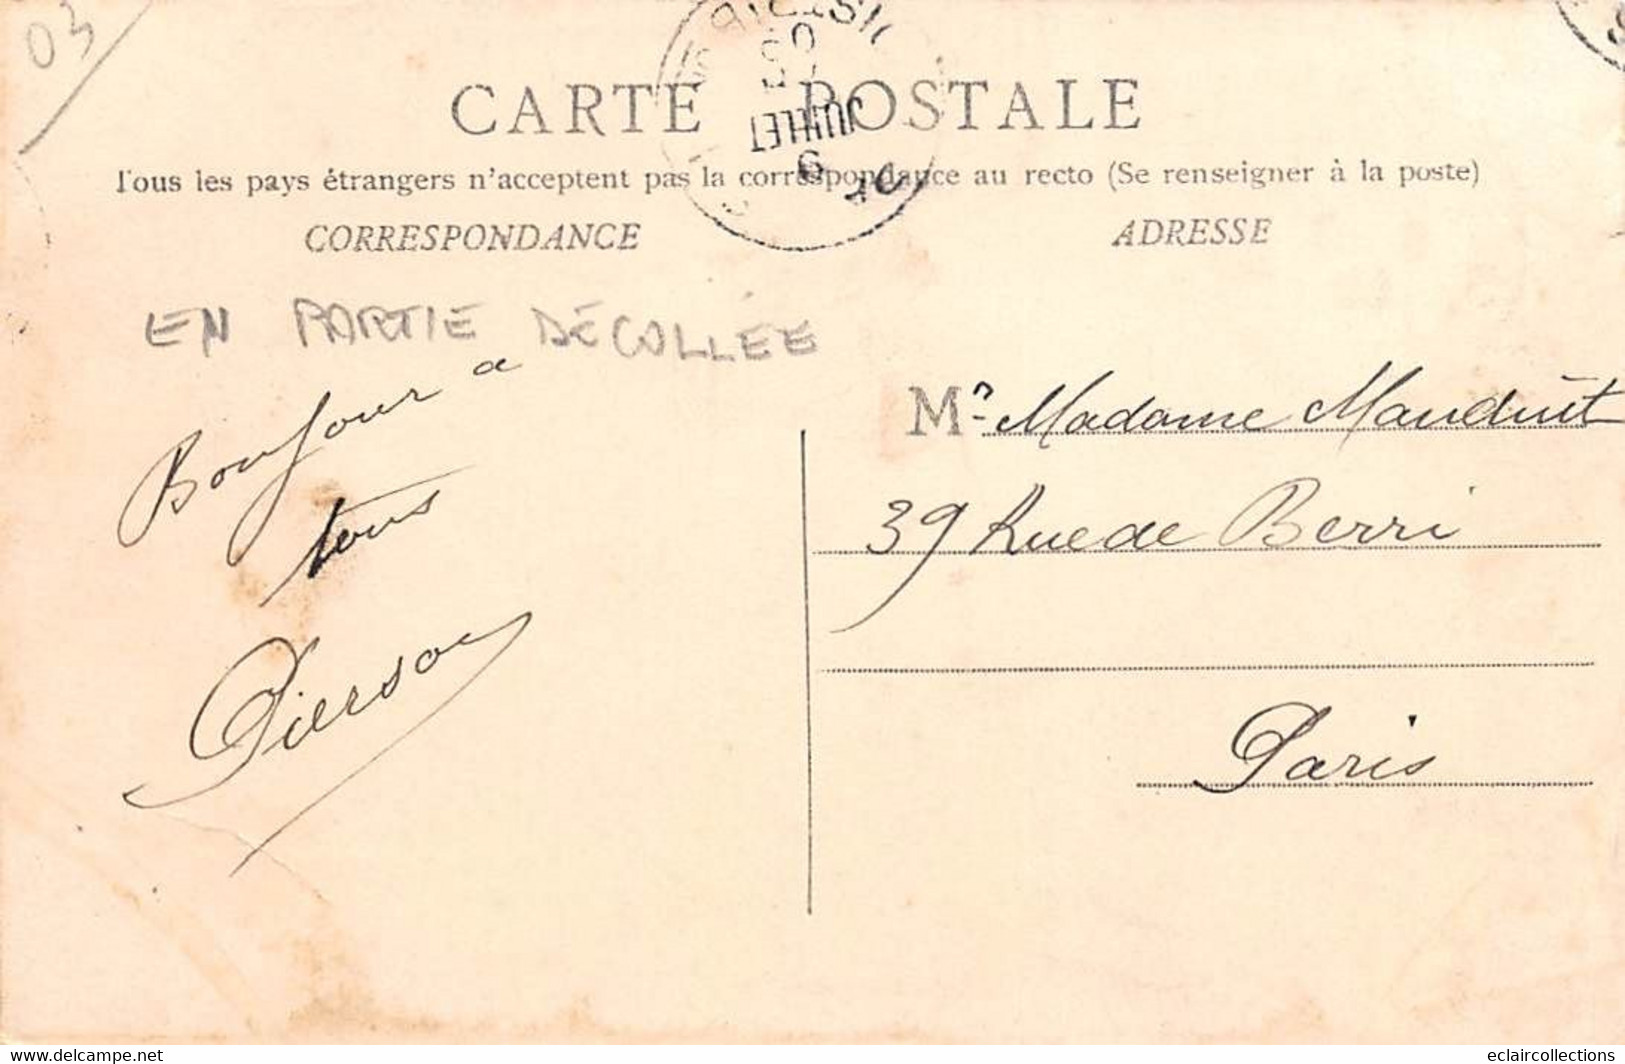 03
CARTE POSTALE
Tous les pays étrangers n'acceptent pas la correspondance au recto (Se renseigner à la poste)
CORRESPONDANCE
ADRESSE
JUILLET
9
EN PARTIE DÉCOLLÉE
Bonjour a
tous
Pierson
M Madame Mauduit
39 Rue de Berri
Paris
www.delcampe.net
eclaircollections